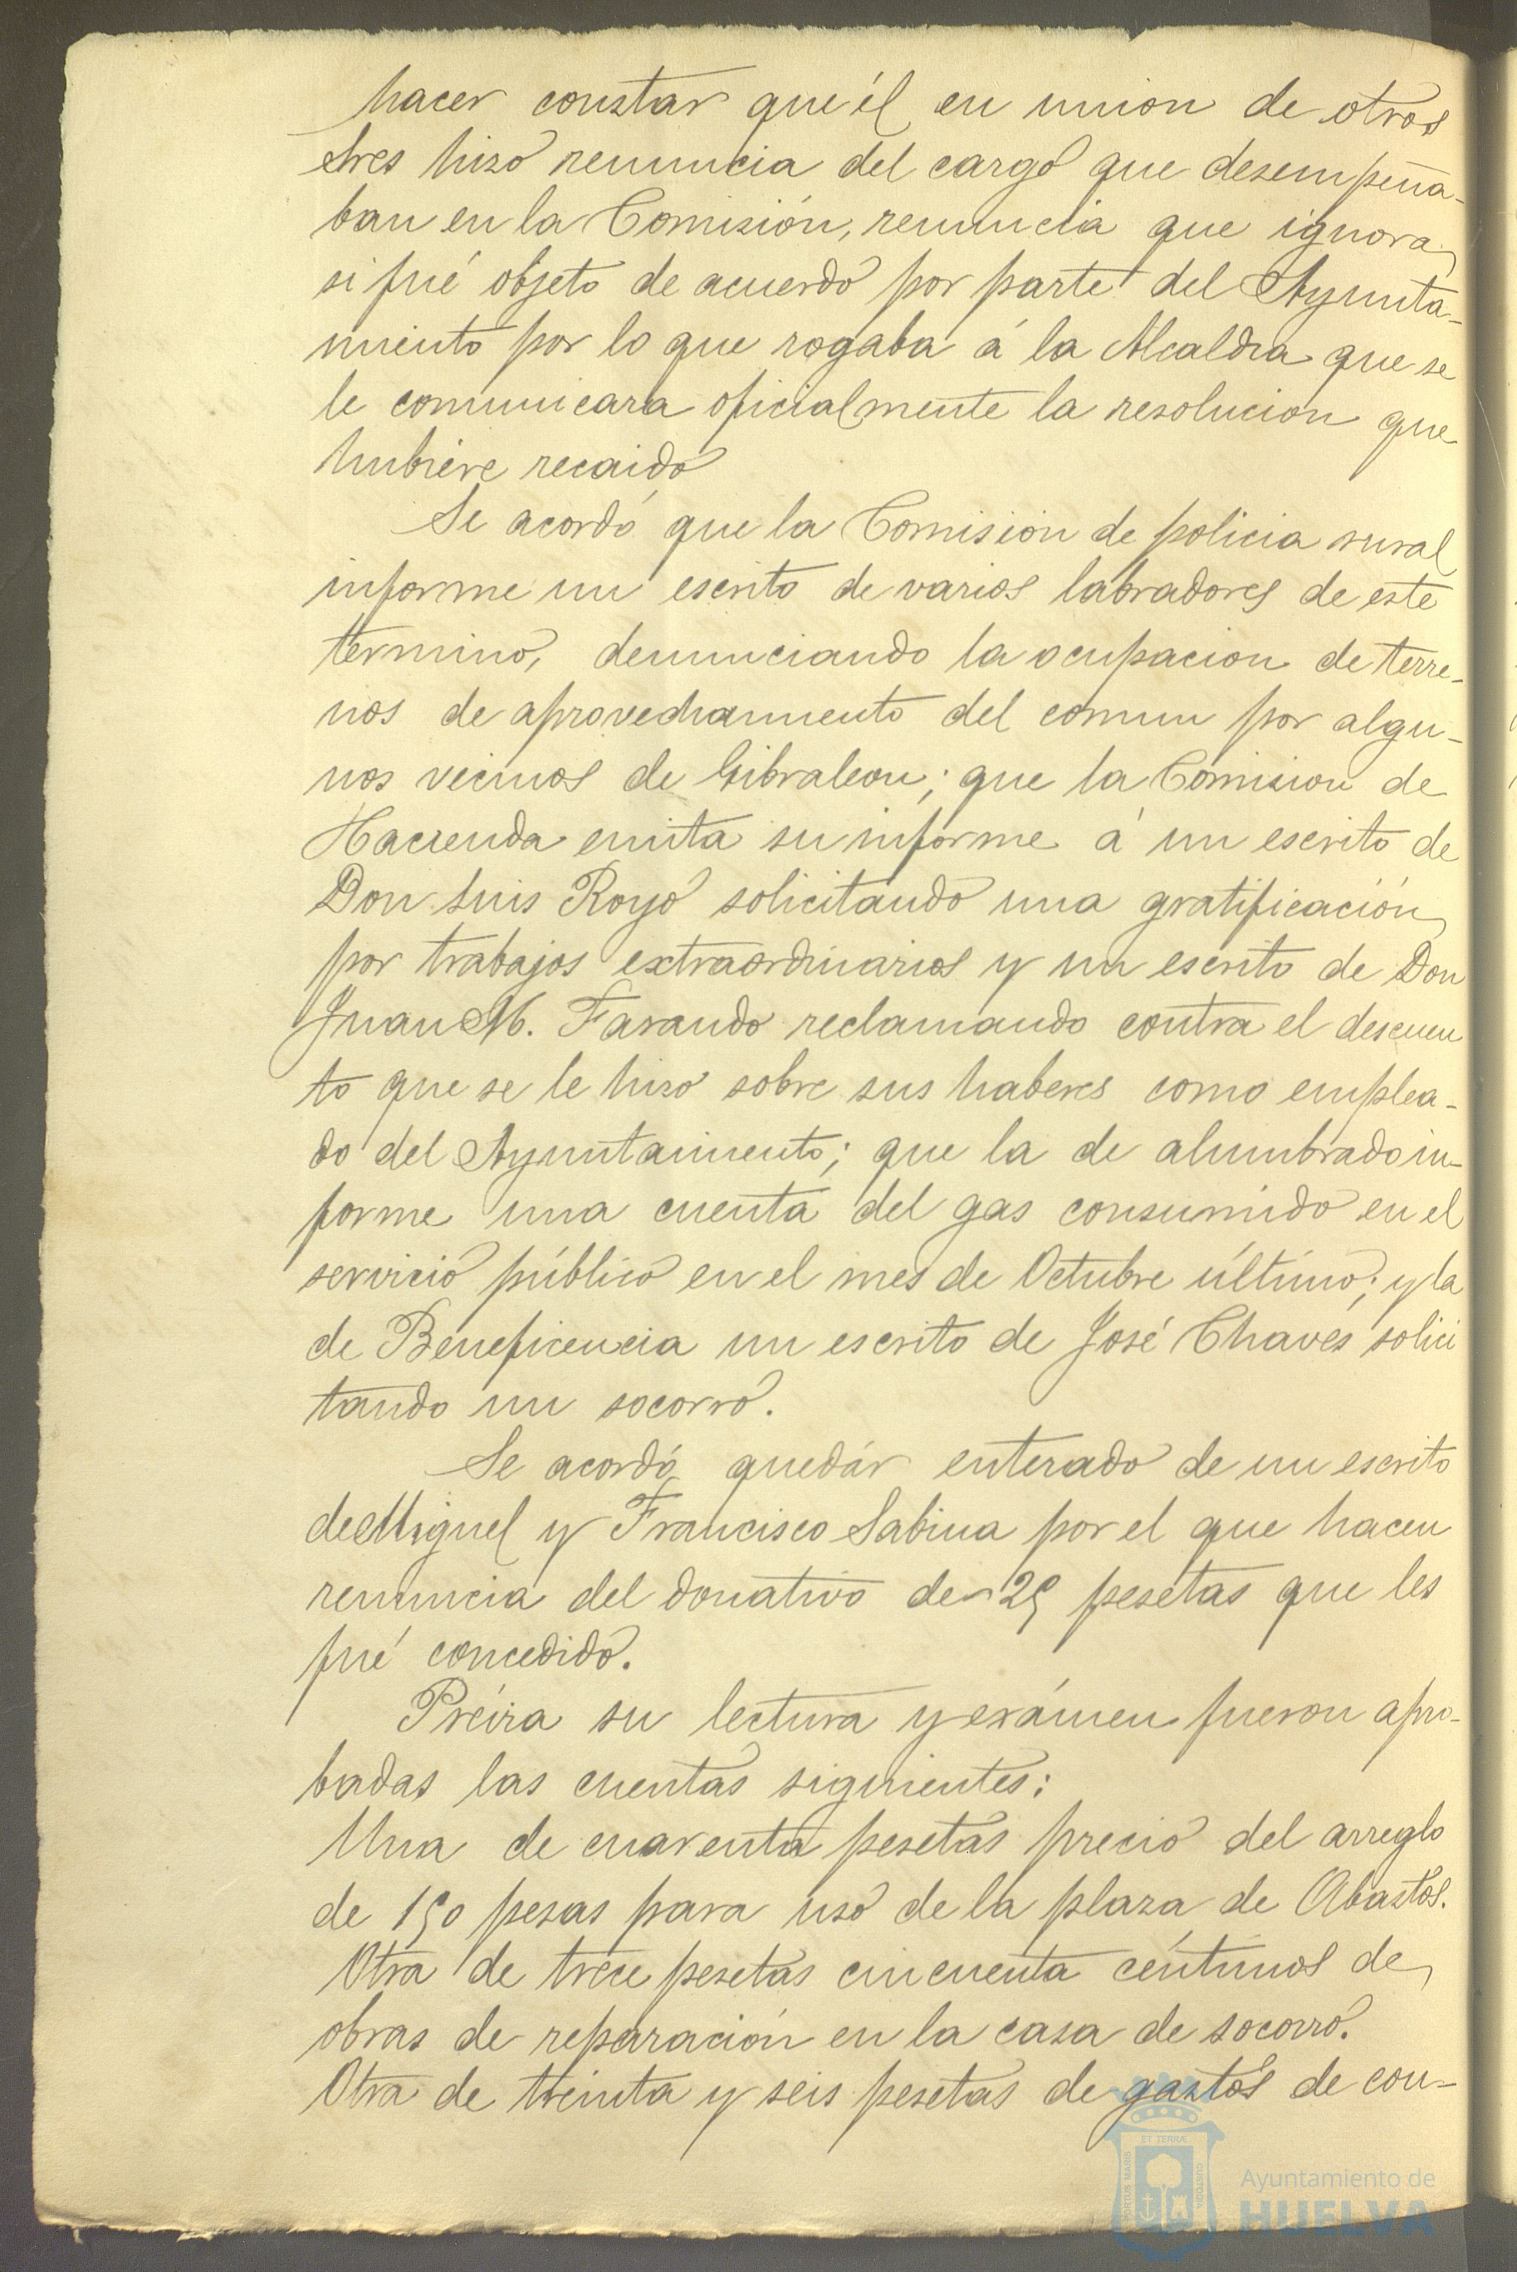 hacer constar que él en union de otros
tres hizo renuncia del cargo que desempeña-
ban en la Comisión, renuncia que ignora
si fué objeto de acuerdo por parte del Ayunta-
miento por lo que rogaba á la Alcaldia que se
le comunicara oficialmente la resolucion que
hubiere recaido
Se acordó que la Comision de policia rural
informe un escrito de varios labradores de este
término, denunciando la ocupacion de terre-
nos de aprovechamiento del comun por algu-
nos vecinos de Gibraleon; que la Comision de
Hacienda emita su informe á un escrito de
Don Luis Royo solicitando una gratificación
por trabajos extraordinarios y un escrito de Don
Juan M. Farando reclamando contra el descuen
to que se le hizo sobre sus haberes como emplea-
do del Ayuntamiento; que la de alumbrado in-
forme una cuenta del gas consumido en el
servicio público en el mes de Octubre último; y la
de Beneficencia un escrito de José Chaves solici
tando un socorro.
Se acordó quedár enterado de un escrito
de Miguel y Francisco Sabina por el que hacen
renuncia del donativo de 25 pesetas que les
fué concedido.
Prévia su lectura y exámen fueron apro-
badas las cuentas siguientes:
Una de cuarenta pesetas precio del arreglo
de 150 pesas para uso de la plaza de Abastos.
Otra de trece pesetas cincuenta céntimos de
obras de reparación en la casa de socorro.
Otra de treinta y seis pesetas de gastos de con-
PORTUS MARIS ET TERRÆ CUSTODIA
Ayuntamiento de
HUELVA